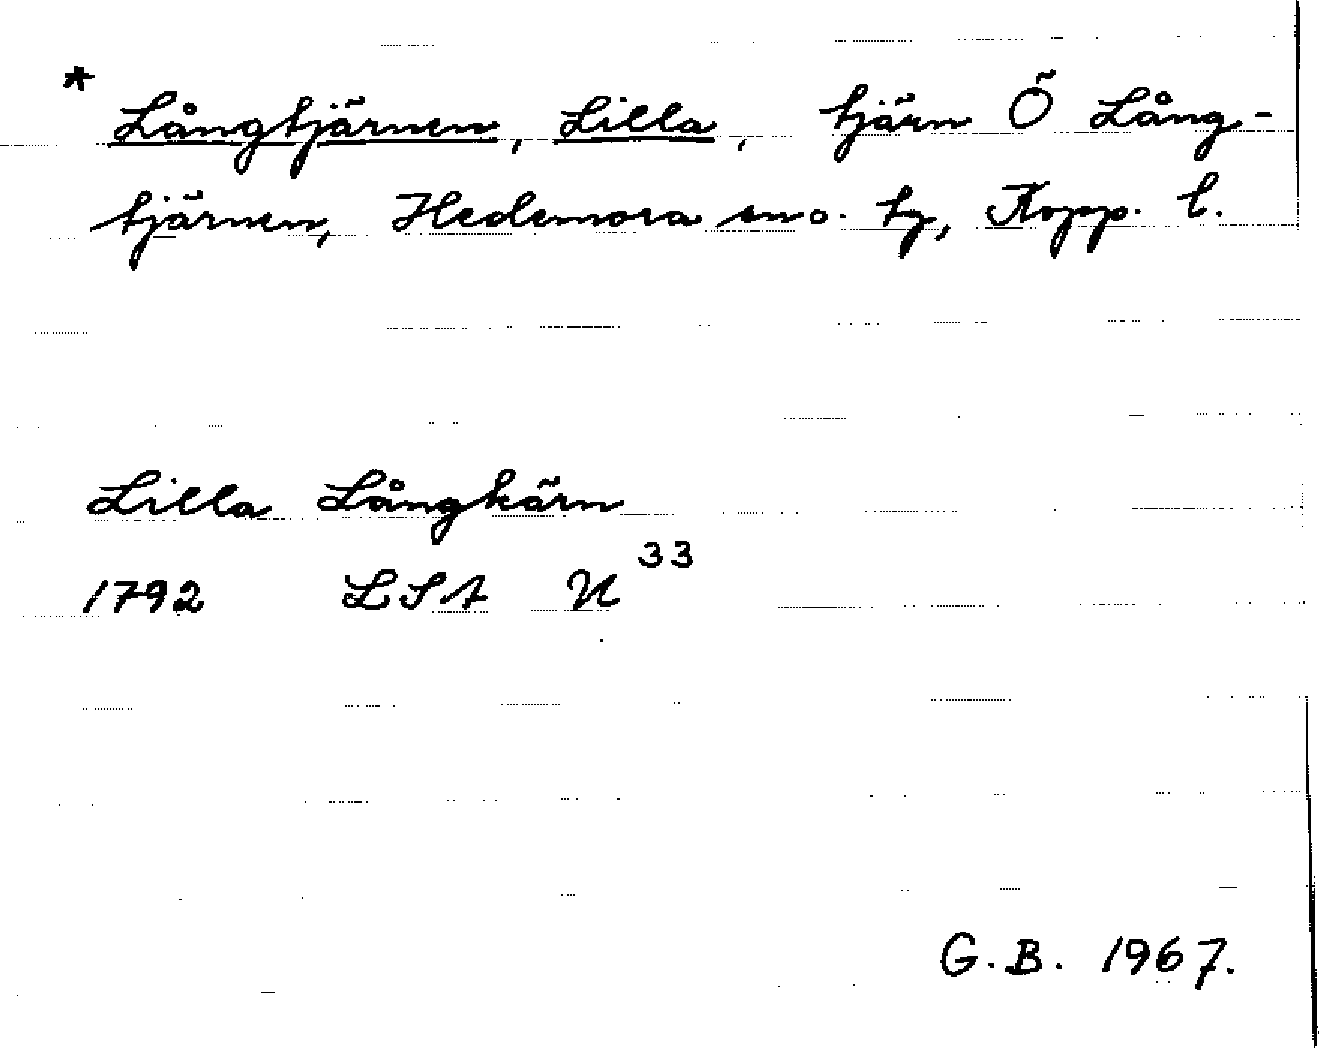 * Långtjärnen, Lilla, tjärn Ö Lång-
tjärnen, Hedemora sn o. tg, Kopp. l.
Lilla Långkärn
1792 LSA U³³
G.B. 1967.